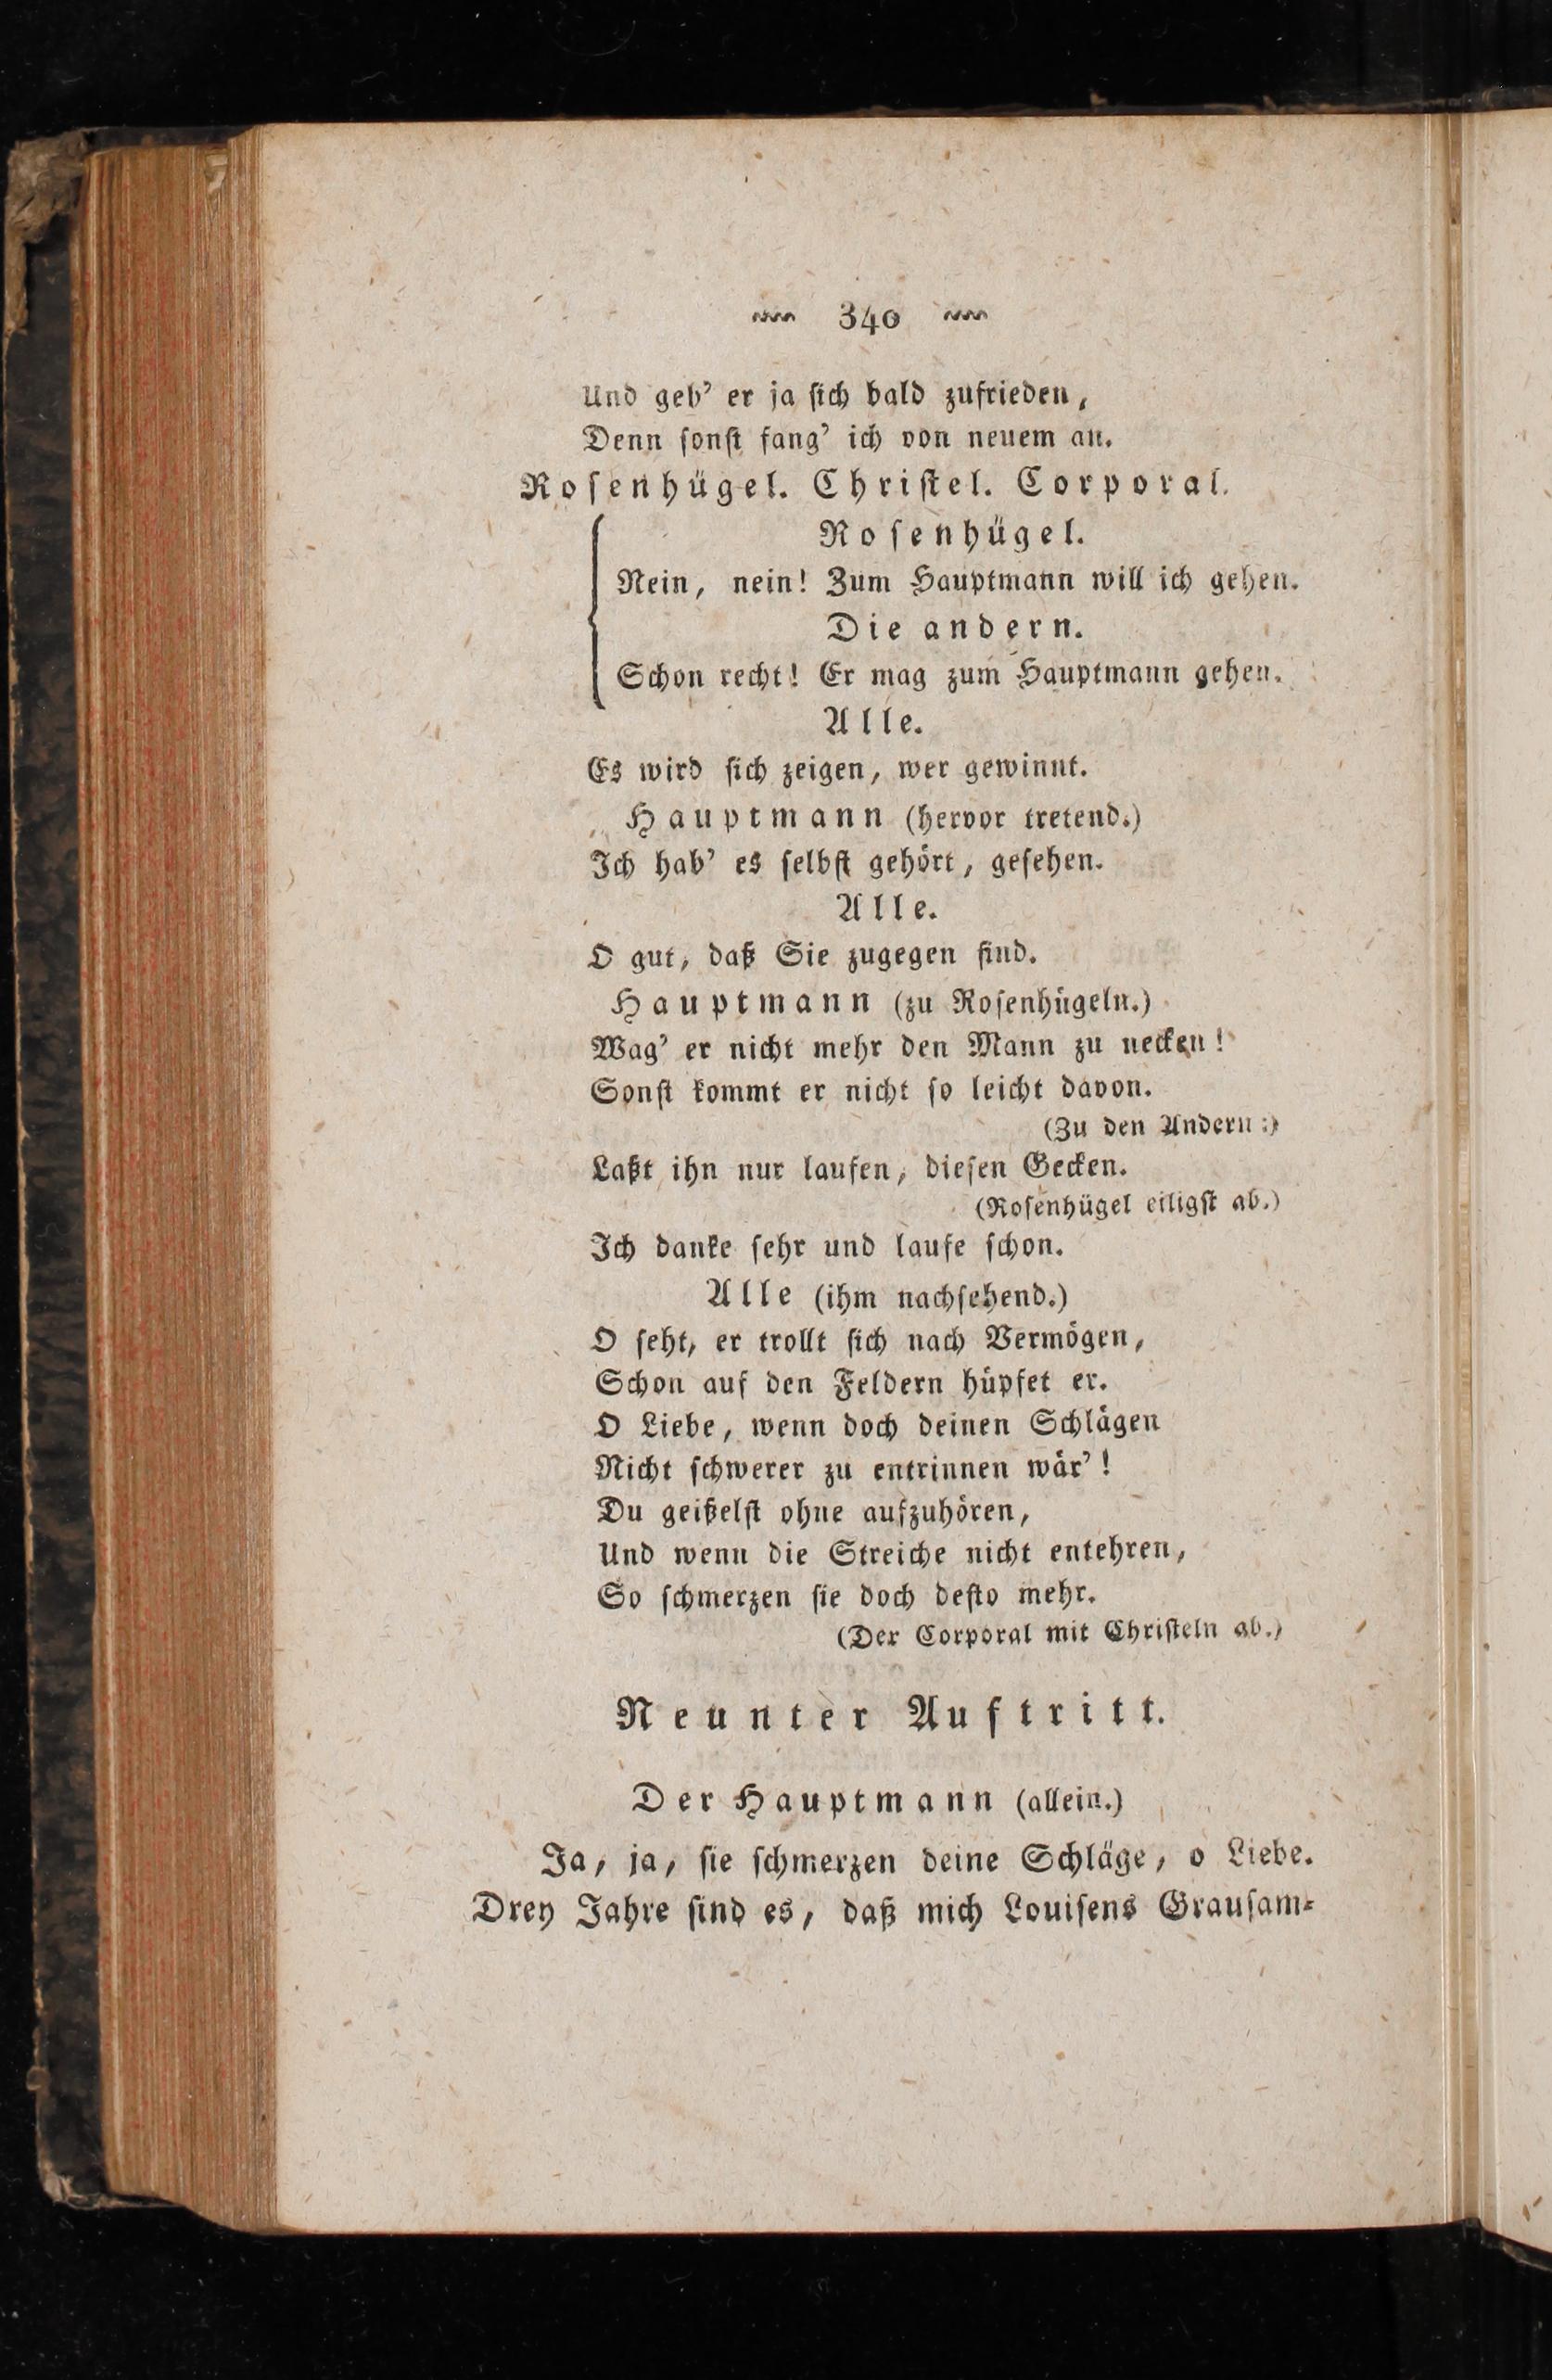 340
Und geb' er ja ſich bald zufrieden,
Denn ſonſt fang' ich von neuem an.
Roſenhügel. Chriſtel. Corporal.
Roſenhügel.
Nein, nein! Zum Hauptmann will ich gehen.
Die andern.
Schon recht! Er mag zum Hauptmann gehen.
Alle.
Es wird ſich zeigen, wer gewinnt.
Hauptmann (hervor tretend.)
Ich hab' es ſelbſt gehört, geſehen.
Alle.
O gut, daß Sie zugegen ſind.
Hauptmann (zu Roſenhügeln.)
Wag' er nicht mehr den Mann zu necken!
Sonſt kommt er nicht ſo leicht davon.
(Zu den Andern:)
Laßt ihn nur laufen, dieſen Gecken.
(Roſenhügel eiligſt ab.)
Ich danke ſehr und laufe ſchon.
Alle (ihm nachſehend.)
O ſeht, er trollt ſich nach Vermögen,
Schon auf den Feldern hüpfet er.
O Liebe, wenn doch deinen Schlägen
Nicht ſchwerer zu entrinnen wär'!
Du geißelſt ohne aufzuhören,
Und wenn die Streiche nicht entehren,
So ſchmerzen ſie doch deſto mehr.
(Der Corporal mit Chriſteln ab.)
Neunter Auftritt.
Der Hauptmann (allein.)
Ja, ja, ſie ſchmerzen deine Schläge, o Liebe.
Drey Jahre ſind es, daß mich Louiſens Grauſam⸗